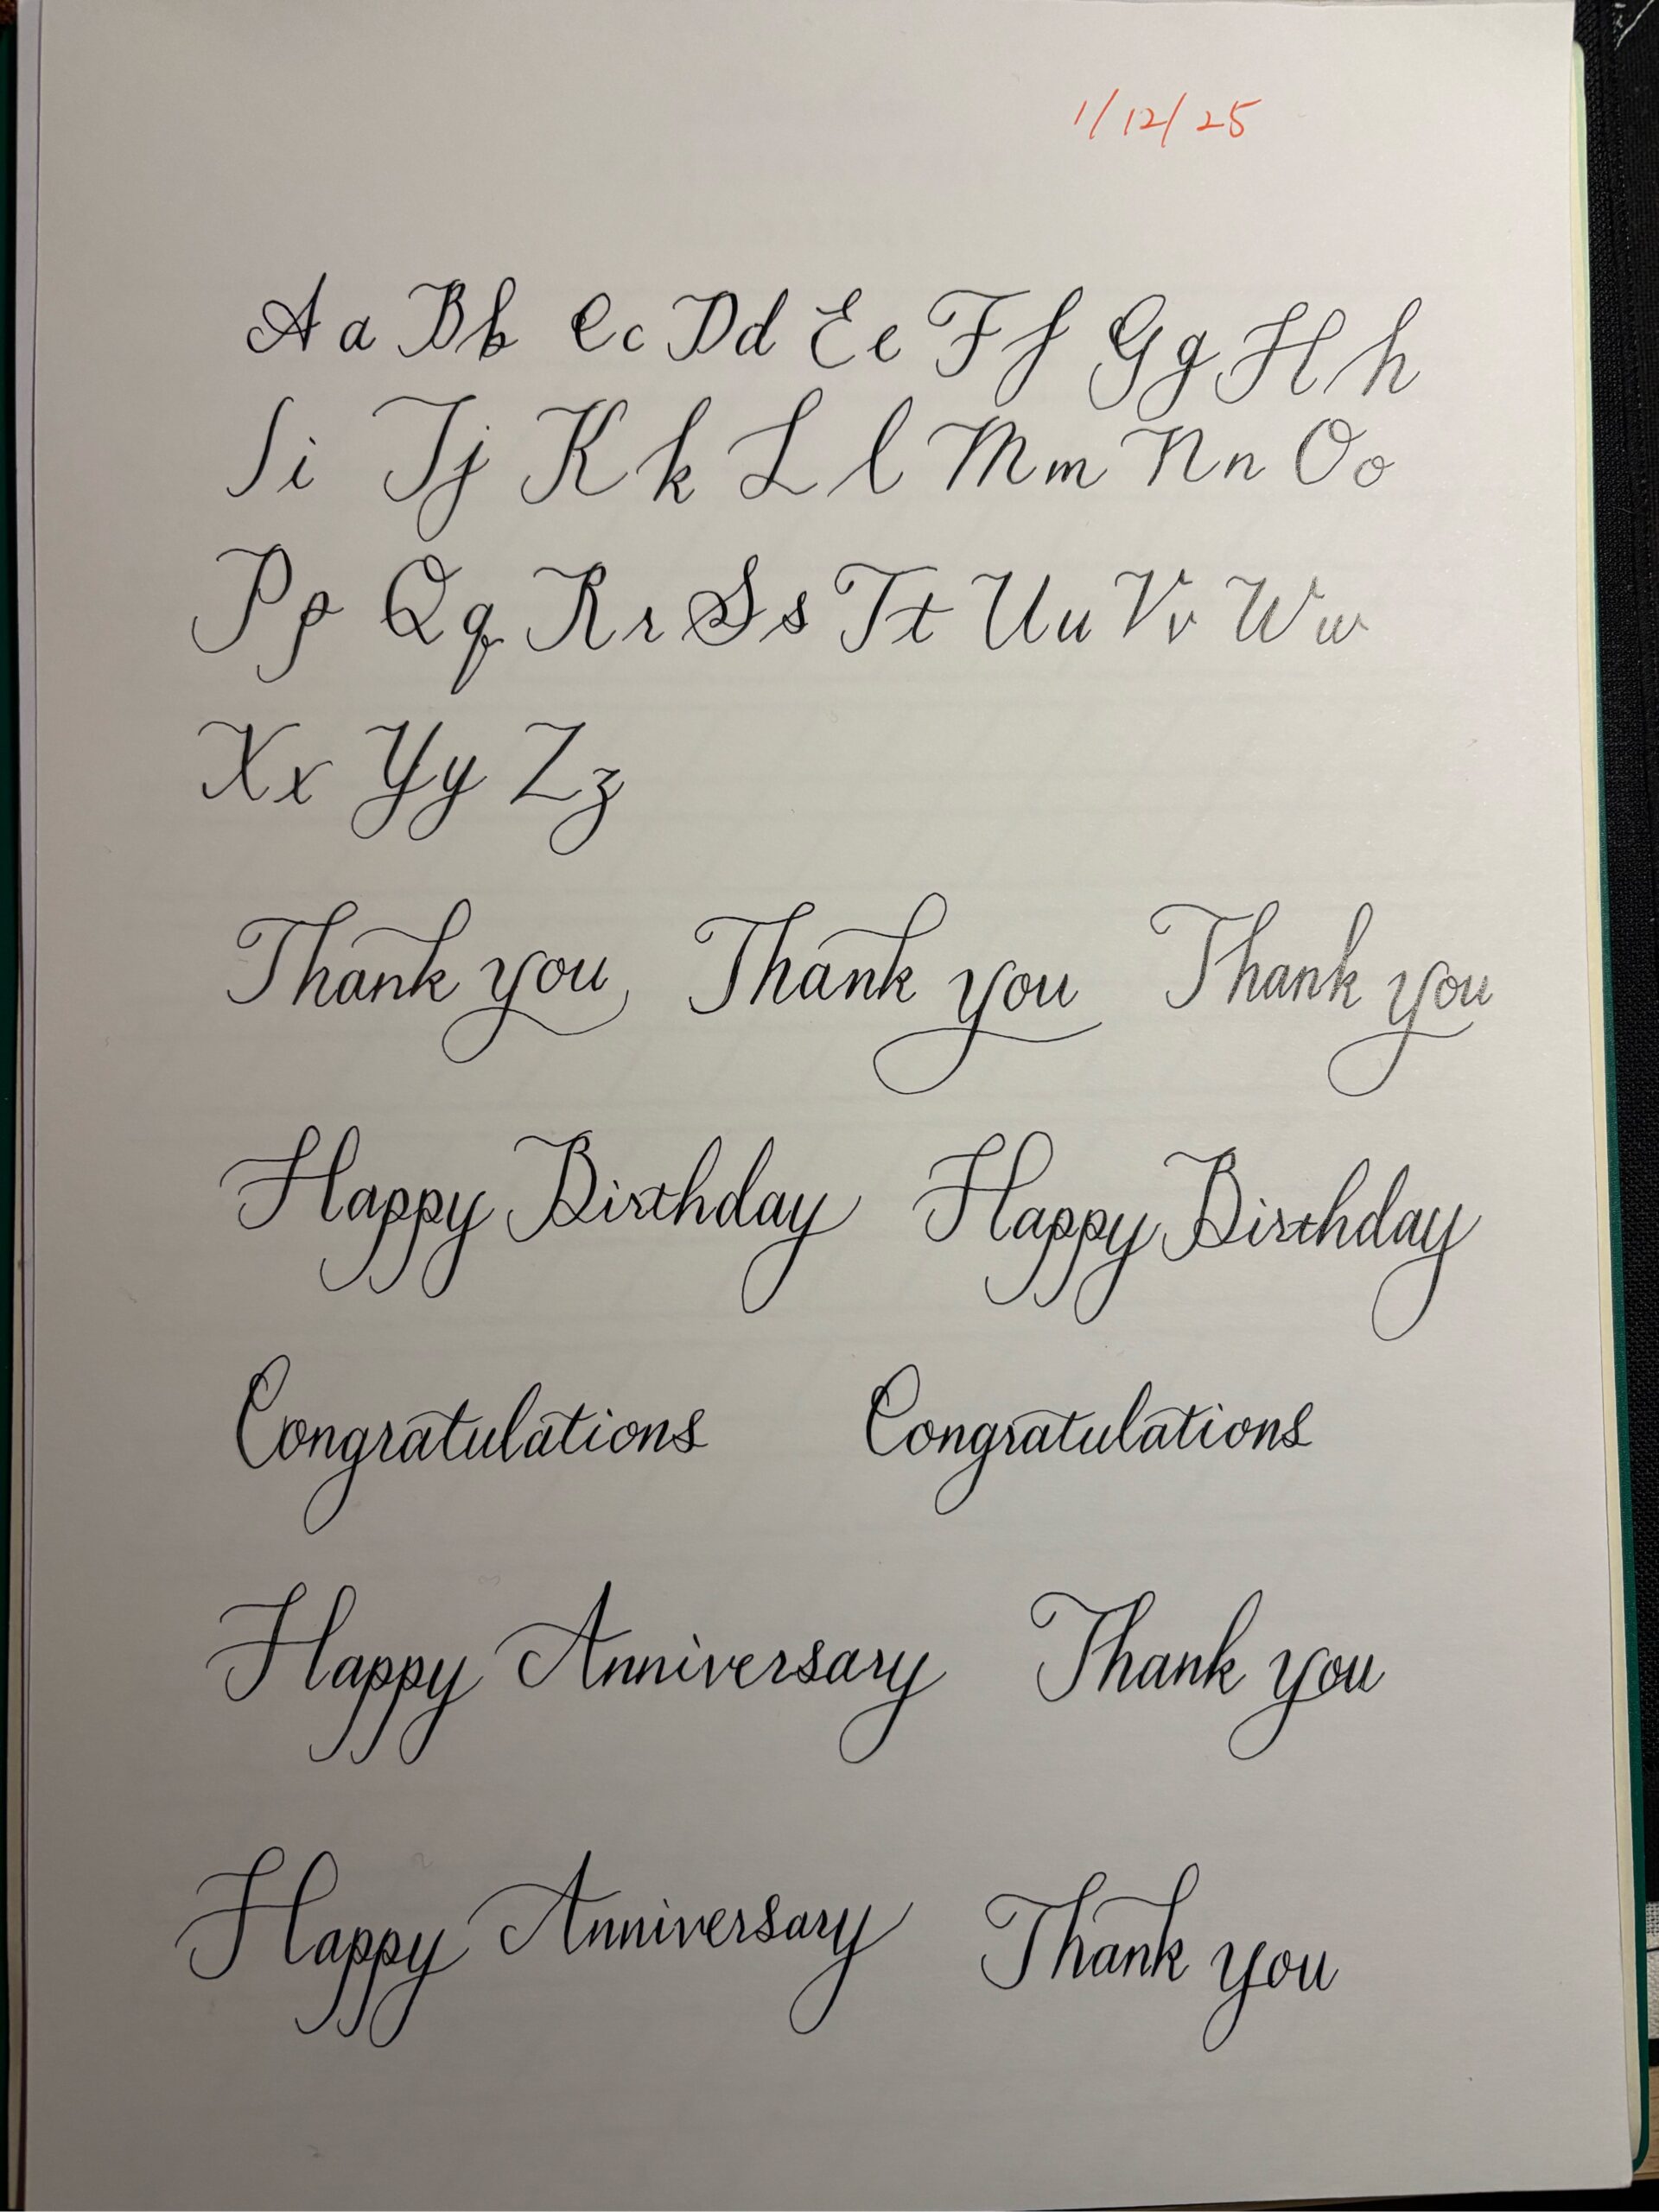 1/12/25
Aa Bb Cc Dd Ee Ff Gg Hh
Ii Jj Kk Ll Mm Nn Oo
Pp Qq Rr Ss Tt Uu Vv Ww
Xx Yy Zz
Thank you Thank you Thank you
Happy Birthday Happy Birthday
Congratulations Congratulations
Happy Anniversary Thank you
Happy Anniversary Thank you